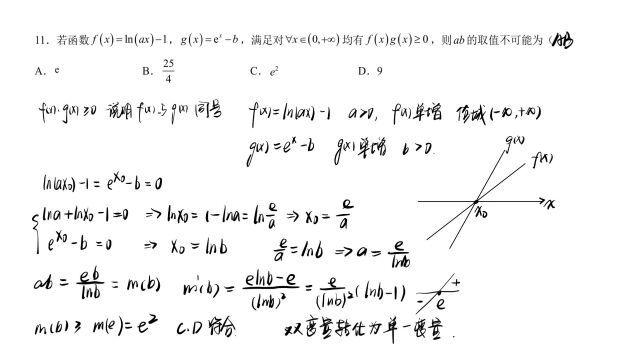 11. 若函数 f(x)=ln(ax)-1, g(x)=e^x-b, 满足对∀x∈(0,+∞)均有 f(x)g(x)≥0, 则 ab 的取值不可能为 ( AB
A. e B. 25/4 C. e² D. 9
f(x)·g(x)≥0 说明 f(x) 与 g(x) 同号 f(x)=ln(ax)-1 a>0, f(x)单增 值域(-∞,+∞)
g(x)=e^x-b g(x)单增 b>0.
g(x)
f(x)
x
x₀
ln(ax₀)-1=e^x₀-b=0
{ lna+lnx₀-1=0 ⇒ lnx₀=1-lna=ln e/a ⇒ x₀=e/a
e^x₀-b=0 ⇒ x₀=lnb e/a=lnb ⇒ a=e/lnb
ab=eb/lnb=m(b) m'(b)=(elnb-e)/(lnb)²=e/(lnb)²(lnb-1) - e +
m(b)≥m(e)=e² C.D 符合 双变量转化为单一变量.